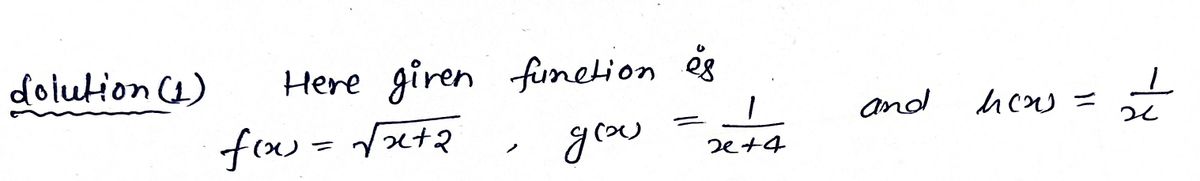 Solution (1) Here given function is
f(x) = √x+2 , g(x) = 1/x+4 and h(x) = 1/x